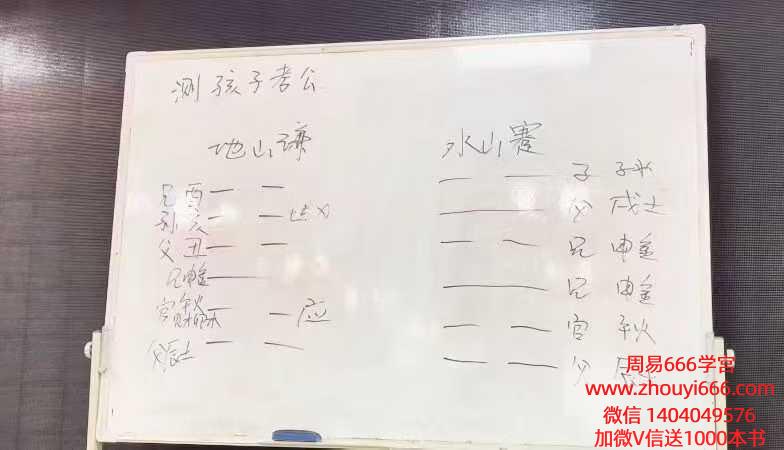 测孩子考公
地山谦
水山蹇
兄酉
孙亥 世X
父丑
兄申金
官午火 应
父辰土
子 子水
父 戌土
兄 申金
兄 申金
官 午火
父
周易666学宫
www.zhouyi666.com
微信 1404049576
加微V信送1000本书